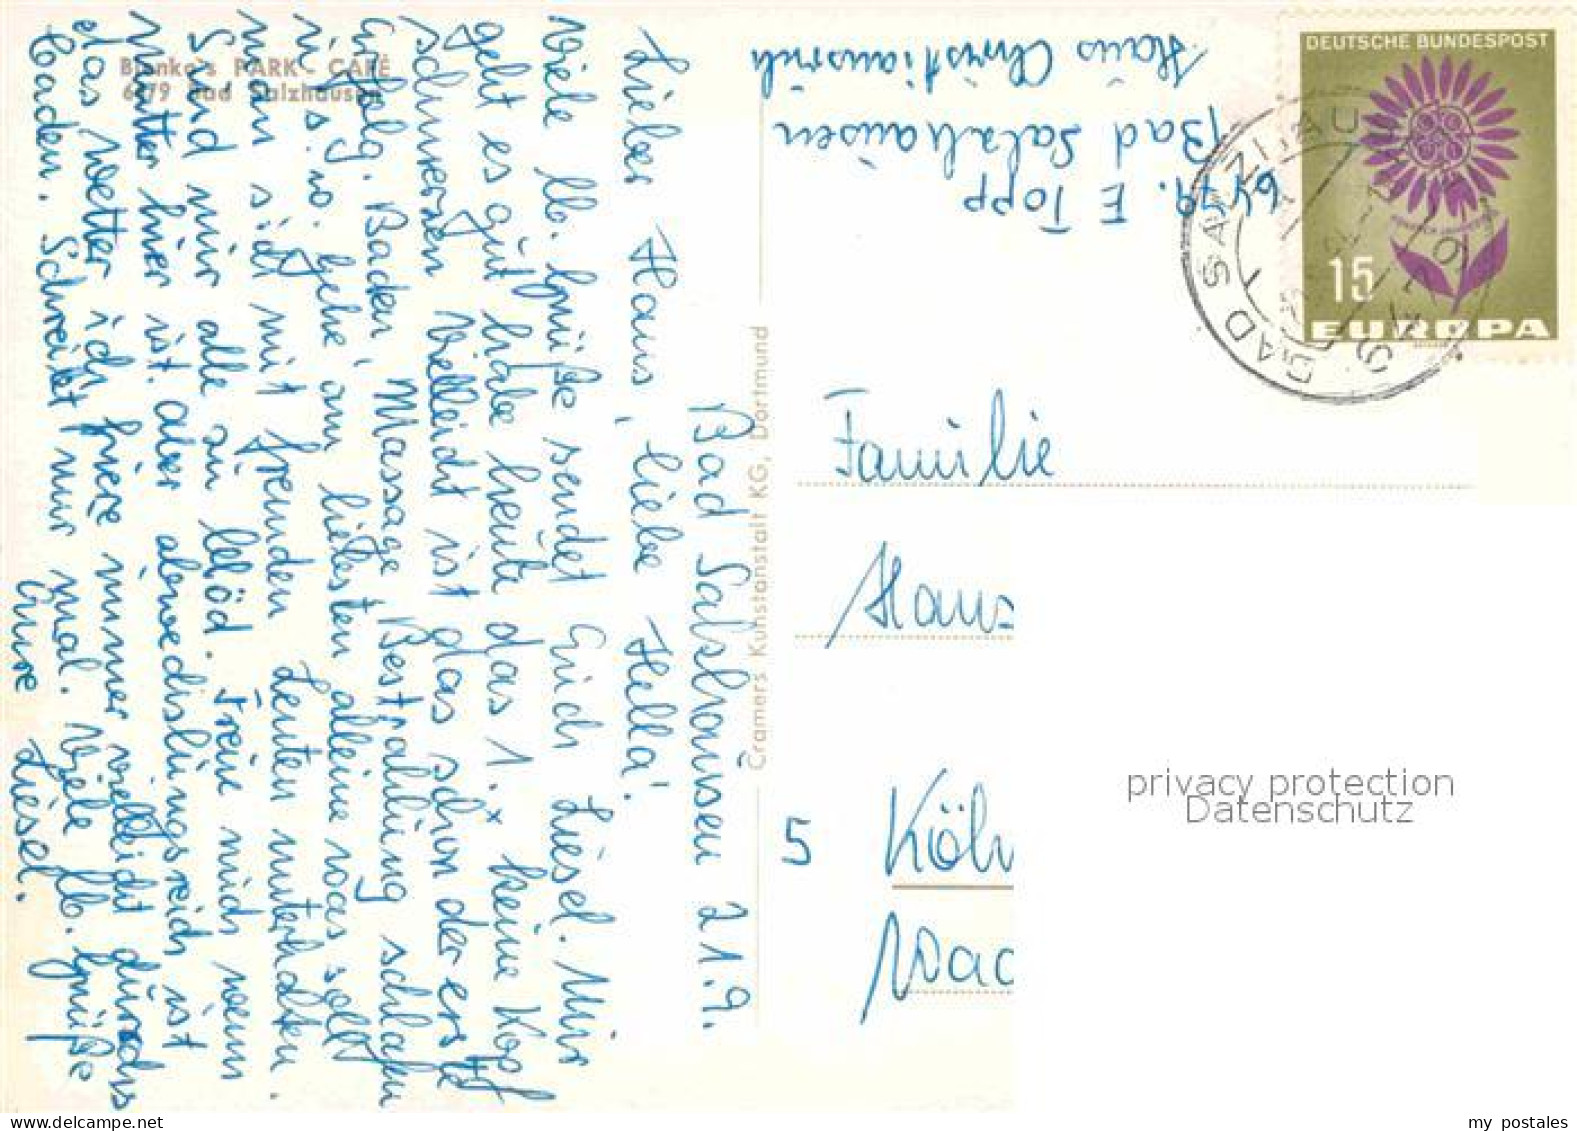 Bianka's PARK - CAFÉ
6479 Bad Salzhausen
Bad Salzhausen 21.9.
Lieber Hans, liebe Hella!
Viele lb. Grüße sendet Euch Liesel. Mir
geht es gut habe heute das 1.x keine Kopf
schmerzen vielleicht ist das schon der erste
Erfolg. Baden, Massage Bestrahlung schlafen
u.s.w. Gehe am liebsten alleine was soll
man sich mit fremden Leuten unterhalten.
Sind mir alle zu blöd. Freu mich wenn
Mutter hier ist. aber abwechslungsreich ist
das Wetter ich friere immer vielleicht durchs
baden. Schreibt mir mal. Viele lb. Grüße
Eure Liesel.
Cramers Kunstanstalt KG, Dortmund
E Topp
6479. Bad Salzhausen
Haus Christiansruh
DEUTSCHE BUNDESPOST
15
EUROPA
BAD SALZHAUSEN
Familie
Hans
5 Köln
Wac
privacy protection
Datenschutz
my postales